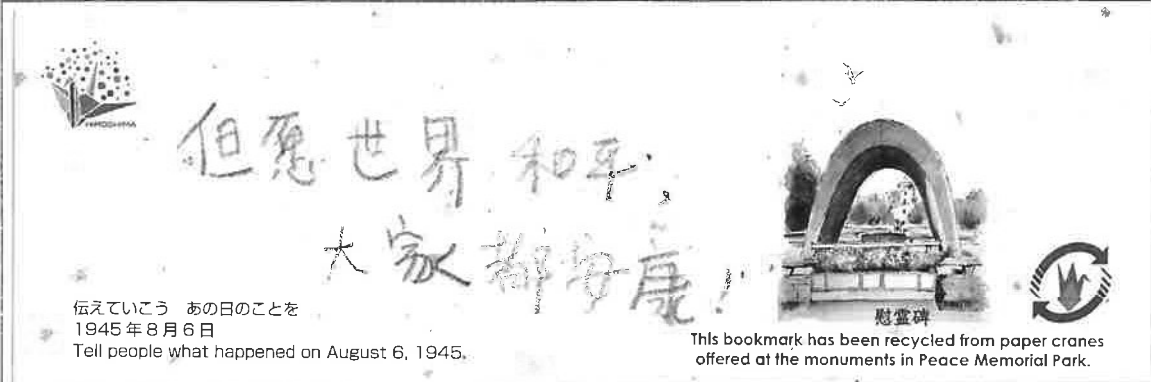 HIROSHIMA
但愿世界和平，
大家都安康！
伝えていこう　あの日のことを
1945年8月6日
Tell people what happened on August 6, 1945.
慰霊碑
This bookmark has been recycled from paper cranes
offered at the monuments in Peace Memorial Park.